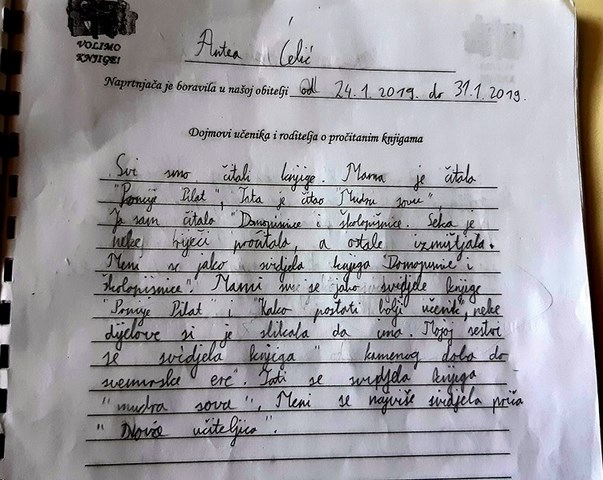 VOLIMO
KNJIGE!
Antea Ćelić
Naprtnjača je boravila u našoj obitelji od 24.1.2019. do 31.1.2019.
Dojmovi učenika i roditelja o pročitanim knjigama
Svi smo čitali knjige. Mama je čitala
"Poncije Pilat", Tata je čitao "Mudru sovu",
Ja sam čitala "Domopisnice i školopisnice. Seka je
neke riječi pročitala, a ostale izmišljala.
Meni se jako svidjela knjiga "Domopisnice i
školopisnice". Mami su se jako svidjele knjige
"Poncije Pilat" i "Kako postati bolji učenik", neke
dijelove si je slikala da ima. Mojoj sestri
se svidjela knjiga " kamenog doba do
svemirske ere". Tati se svidjela knjiga
"mudra sova". Meni se najviše svidjela priča
" Nova učiteljica".